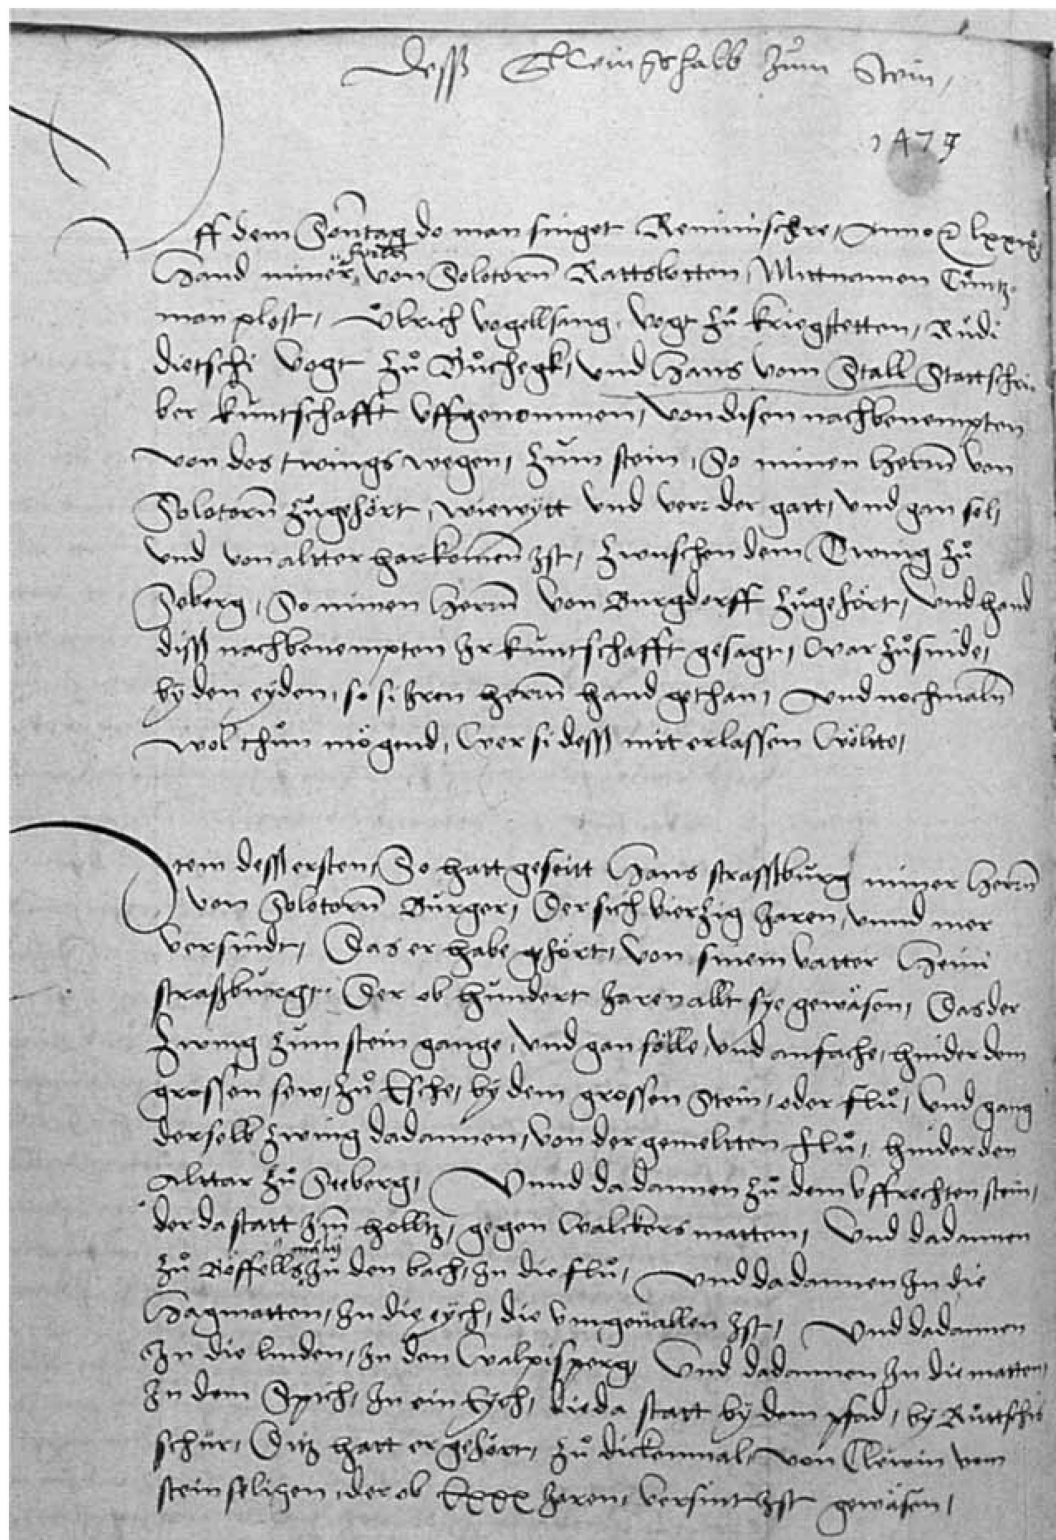 Desß Kleinßhalb zum Stein,
1479
Uff dem Sonntag do man singet Reminischre, Anno lxxix
Hand miner herren von Solotorn Rattsbotten, Mittnamen Cuͦntz-
man plost, Uͦlrich vogellsang, vogt zuͦ kriegstetten, Ruͦdi
dietschi vogt zuͦ Buͦchegk, und Hans vom Stall Stattschri-
ber kuntschafft uffgenommen, von disen nachbenempten
von des twings wegen, zum stein, So minen herrn von
Solotorn zuͦgehört, wiewytt und verr der gatt, und gan sol,
und von altter harkomen Ist, zwuschen dem Twing zuͦ
Seberg, So minen herrn von Burgdorff zuͦgehört, Und hand
disß nachbenempten Ir kuntschafft gesagt, war zuͦ sinde,
by den eyden, so si Iren herrn hand gethan, und nochmaln
wol thuͦn mögend, wer si desß nit erlassen wöltte,
Item desß ersten, So hatt geseitt Hans strasßburg miner herrn
von Solotorn Burger, Der sich vierzig Jaren, unnd mer
versindt, Das er habe ghört, von sinem vatter Heini
straßburg, Der ob hundert Jaren allt sye gewäsen, Das der
Zwing zum stein gange, und gan sölle, und anfache, hinder dem
grossen sew, zuͦ Esche, by dem grossen Stein, oder fluͦ, Und gang
derselb zwing dadannen, von der gemeltten fluͦ, hinder den
Alttar zuͦ Seeberg, Unnd dadannen zuͦ dem uffrechten stein,
der da statt Im holltz, gegen Walckers matten, Und dadannen
zuͦ Böffells zuͦ den bach, In die fluͦ, Und dadannen In die
Hagmatten, In die eych, die umgevallen Ist, Und dadannen
In die linden, In den Walpisperg, Und dadannen In die matten,
In dem Spich, In ein Eych, die da statt by dem pfad, by Ruͦttschis
schür, Ditz hatt er gehört, zuͦ dickenmal, von Clewin vom
stein seligen, der ob lxxx Jaren, versint Ist gewäsen,